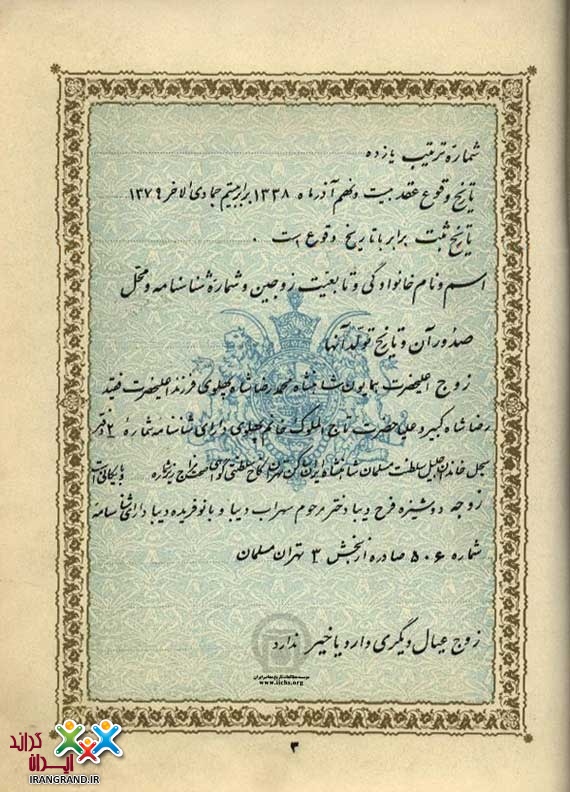 شمارهٔ ترتیب یازده
تاریخ وقوع عقد بیست و نهم آذرماه ۱۳۳۸ برابر بیستم جمادی الاخر ۱۳۷۹
تاریخ ثبت برابر با تاریخ وقوع است .
اسم و نام خانوادگی و تابعیت زوجین و شمارهٔ شناسنامه و محل
صدور آن و تاریخ تولد آنها
زوج اعلیحضرت همایون شاهنشاه محمدرضا شاه پهلوی فرزند اعلیحضرت فقید
رضا شاه کبیر و علیاحضرت تاج الملوک خانم پهلوی دارای شناسنامه شمارهٔ ۲ دفتر
سجل خاندان جلیل سلطنت مسلمان شاهنشاه ایران ساکن تهران کاخ سلطنتی گواهی صحت مزاج
زوجه دوشیزه فرح دیبا دختر مرحوم سهراب دیبا و بانو فریده دیبا دارای شناسنامه
شماره ۵۰۶ صادره از بخش ۳ تهران مسلمان
زوج عیال دیگری دارد یا خیر ندارد
موسسه مطالعات تاریخ معاصر ایران
www.iichs.org
۳
گراند
ایران
IRANGRAND.IR